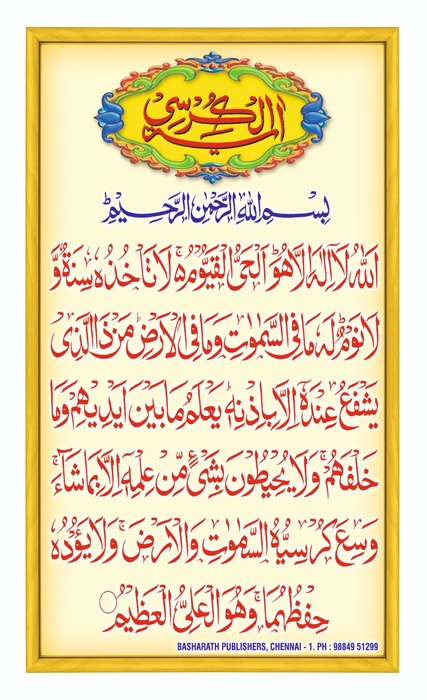 آية الكرسي
بِسْمِ اللهِ الرَّحْمٰنِ الرَّحِيْمِ
اَللهُ لَآ اِلٰهَ اِلَّا هُوَ ۚ اَلْحَىُّ الْقَيُّوْمُ ۚ لَا تَاْخُذُهٗ سِنَةٌ وَّ
لَا نَوْمٌ ؕ لَهٗ مَا فِى السَّمٰوٰتِ وَمَا فِى الْاَرْضِ ؕ مَنْ ذَا الَّذِىْ
يَشْفَعُ عِنْدَهٗٓ اِلَّا بِاِذْنِهٖ ؕ يَعْلَمُ مَا بَيْنَ اَيْدِيْهِمْ وَمَا
خَلْفَهُمْ ۚ وَلَا يُحِيْطُوْنَ بِشَىْءٍ مِّنْ عِلْمِهٖٓ اِلَّا بِمَا شَآءَ ۚ
وَسِعَ كُرْسِيُّهُ السَّمٰوٰتِ وَالْاَرْضَ ۚ وَلَا يَـُٔوْدُهٗ
حِفْظُهُمَا ۚ وَهُوَ الْعَلِىُّ الْعَظِيْمُ
BASHARATH PUBLISHERS, CHENNAI - 1. PH : 98849 51299